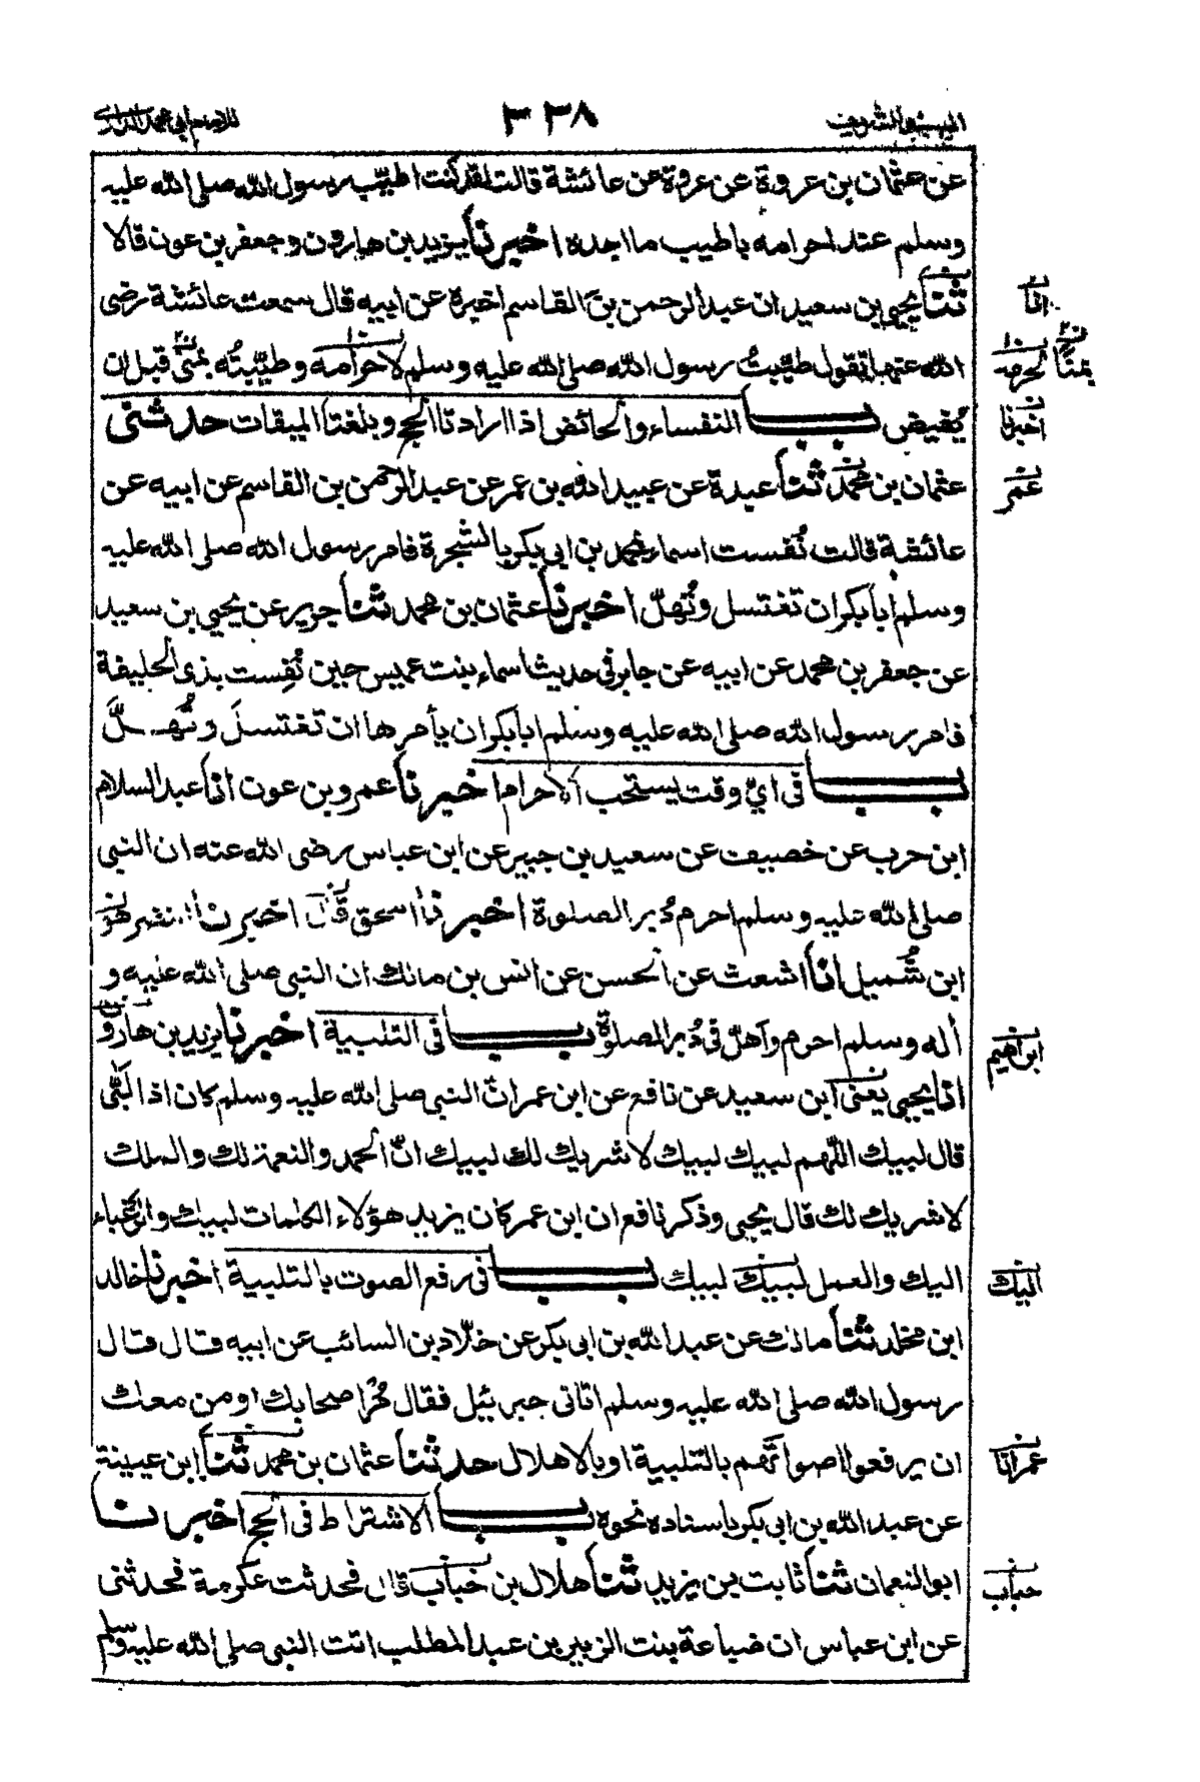 المسند الشريف ٣٣٨ للامام ابي محمد الدارمي
عن عثمان بن عروة عن عروة عن عائشة قالت لقد كنت اطيّب رسول الله صلى الله عليه
وسلم عند احرامه باطيب ما اجده اخبرنا يزيد بن هارون وجعفر بن عون قالا
ثنا يحيى بن سعيد ان عبد الرحمن بن القاسم اخبره عن ابيه قال سمعت عائشة رضى
الله عنها تقول طيّبتُ رسول الله صلى الله عليه وسلم لاحرامه وطيّبتُه بمنى قبل ان
يُفيض باب النفساء والحائض اذا ارادتا الحج وبلغتا الميقات حدثنى
عثمان بن محمد ثنا عبدة عن عبيد الله بن عمر عن عبد الرحمن بن القاسم عن ابيه عن
عائشة قالت نُفست اسماء بمحمد بن ابي بكر بالشجرة فامر رسول الله صلى الله عليه
وسلم ابا بكر ان تغتسل وتُهلّ اخبرنا عثمان بن محمد ثنا جرير عن يحيى بن سعيد
عن جعفر بن محمد عن ابيه عن جابر في حديث اسماء بنت عميس حين نُفِست بذى الحليفة
فامر رسول الله صلى الله عليه وسلم ابا بكر ان يأمرها ان تغتسلَ وتُهلَّ
باب فى ايّ وقت يستحب الاحرام اخبرنا عمرو بن عون انا عبد السلام
ابن حرب عن خصيف عن سعيد بن جبير عن ابن عباس رضى الله عنه ان النبي
صلى الله عليه وسلم احرم دُبر الصلوة اخبرنا اسحق قال اخبرنا النضر هو
ابن شُميل انا اشعث عن الحسن عن انس بن مالك ان النبي صلى الله عليه و
أله وسلم احرم وآهلّ فى دُبر الصلوة باب فى التلبية اخبرنا يزيد بن هارون
انا يحيى يعنى ابن سعيد عن نافع عن ابن عمر انّ النبي صلى الله عليه وسلم كان اذا لَبّى
قال لبيك اللّهم لبيك لبيك لا شريك لك لبيك انّ الحمد والنعمة لك والملك
لا شريك لك قال يحيى وذكر نافع ان ابن عمر كان يزيد هؤلاء الكلمات لبيك والرغباء
اليك والعمل لبيك لبيك باب فى رفع الصوت بالتلبية اخبرنا خالد
ابن مخلد ثنا مالك عن عبد الله بن ابى بكر عن خلّاد بن السائب عن ابيه قال قال
رسول الله صلى الله عليه وسلم اتانى جبرئيل فقال مُر اصحابك او من معك
ان يرفعوا اصواتهم بالتلبية او بالاهلال حدثنا عثمان بن محمد ثنا ابن عيينة
عن عبد الله بن ابى بكر باسناده نحوه باب الاشتراط فى الحج اخبرنا
ابو النعمان ثنا ثابت بن يزيد ثنا هلال بن خباب قال فحدثت عكرمة فحدثنى
عن ابن عباس ان ضباعة بنت الزبير بن عبد المطلب اتت النبي صلى الله عليه وسلم
انا
لحرمه
بمنًا
اخبرنا
عمر
ابراهيم
اليك
عمر انا
حباب